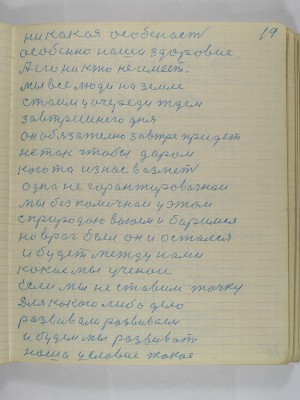 19
никакая особеност
особенно наша здоровие
Аго никто не имеет.
мы все люди на земле
стоим у очереди ждем
завтрешнего дня
он обязателно завтре придет
не так чтобы даром
кого то из нас возмет
одна не гарантированаи
мы без помочнаи у этом
с природою воюем и баримся
но враг бели он и остался
и будет между нами
какие мы ученои
Если мы не ставим точку
Для какого либо дело
развиваем розвиваем
и будем мы розвиват
наша условие такое